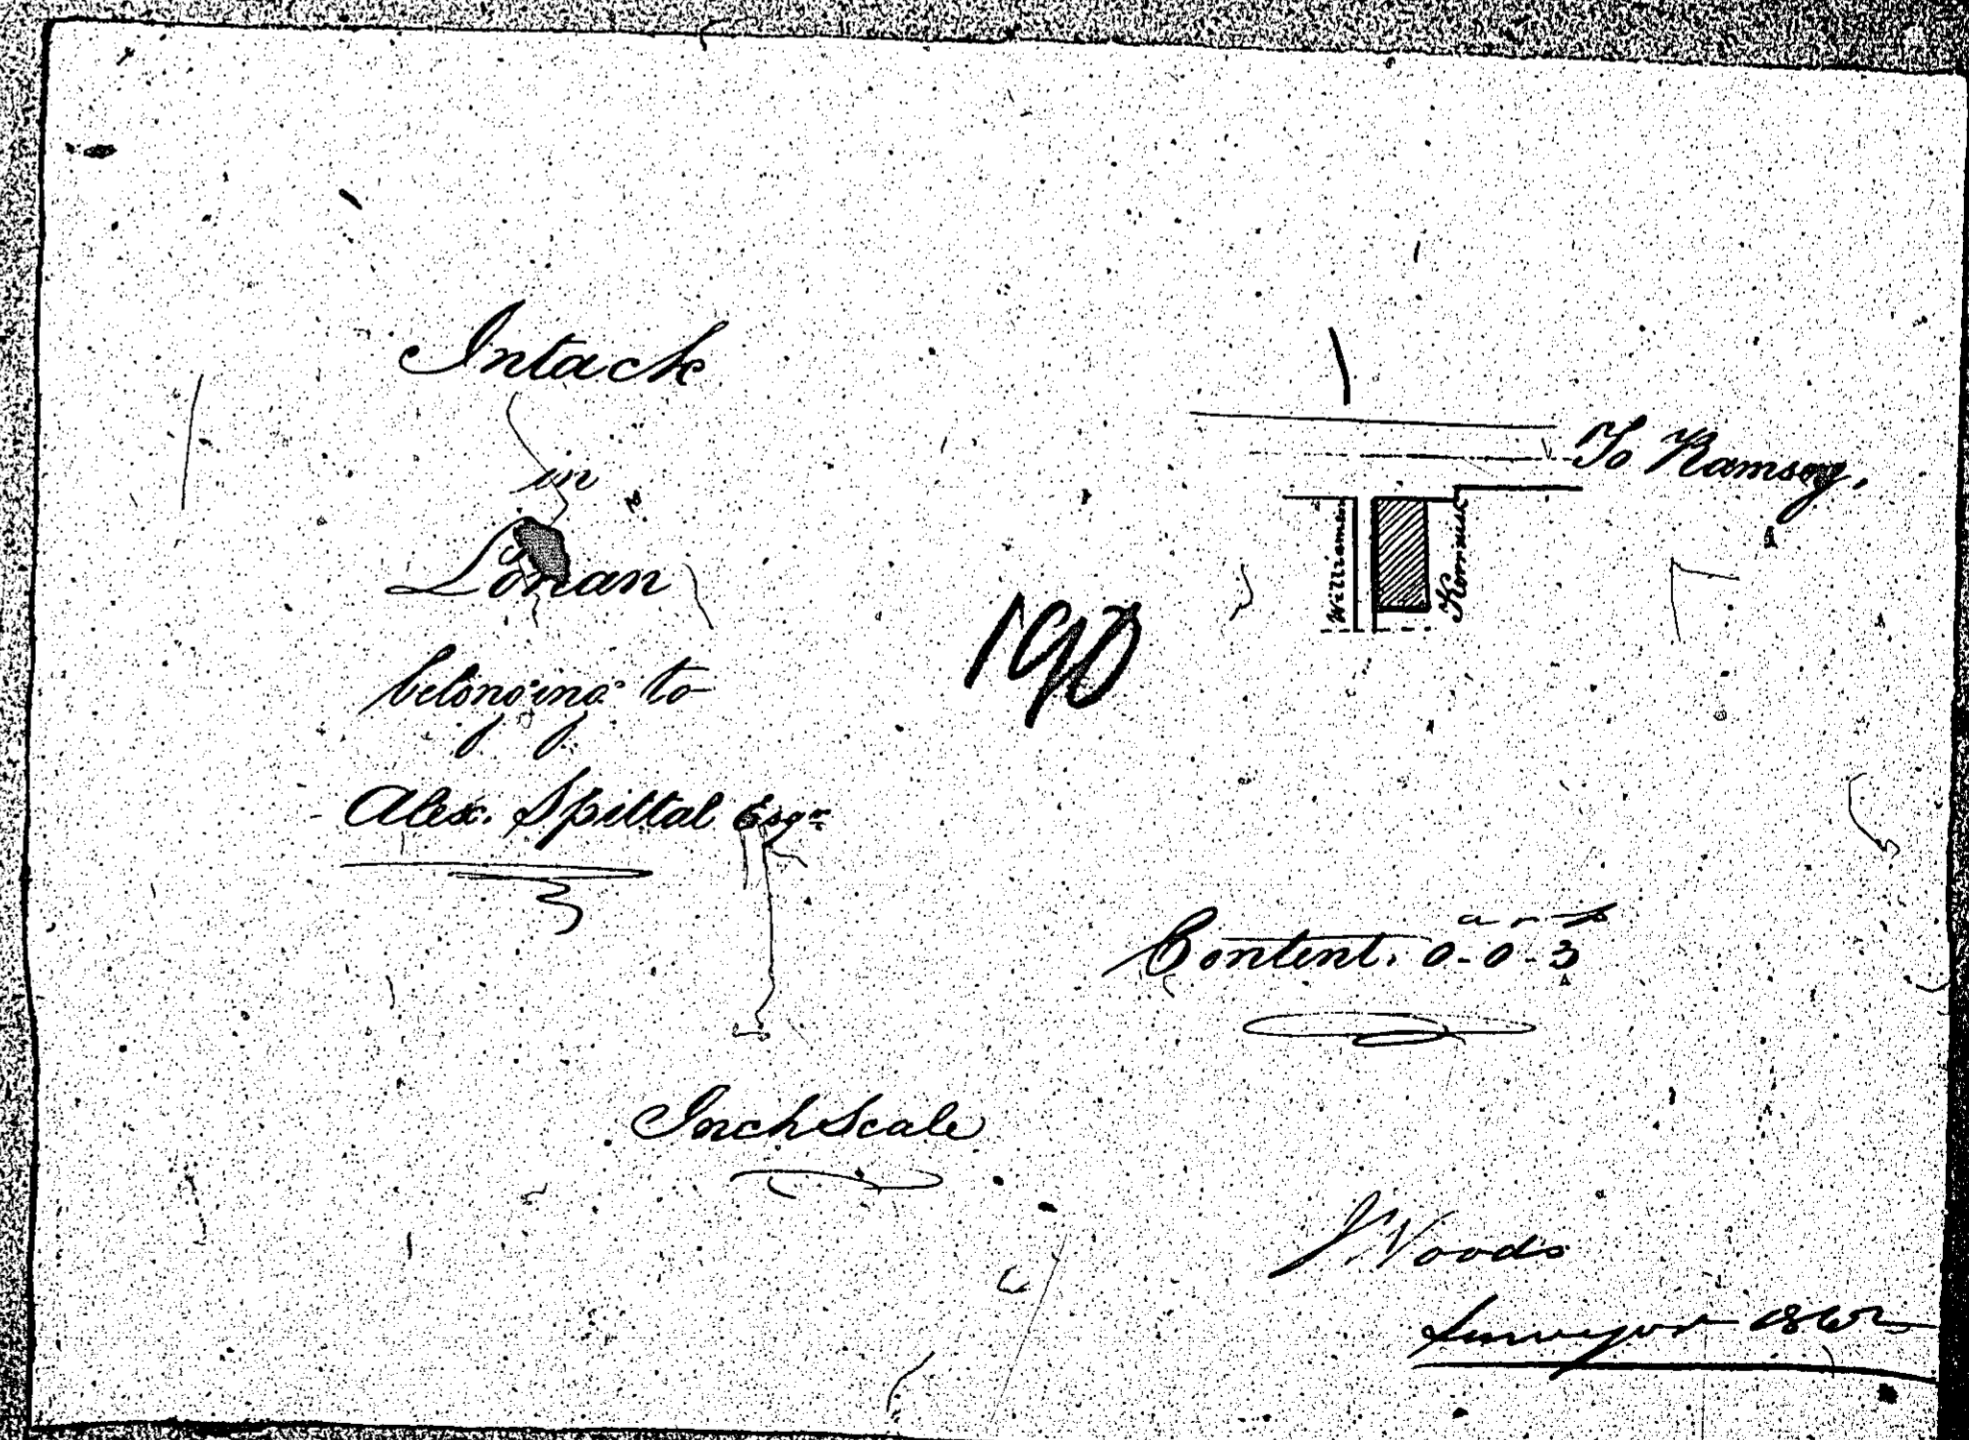 Intack
in
Lonan
belonging to
Alex. Spittal Esqr
190
To Ramsey,
Williamson
Content. 0-0-3
a r p
Inch Scale
J. Woods
Surveyor 1862